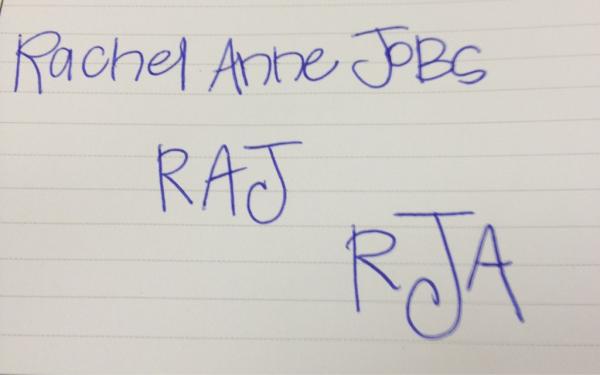 Rachel Anne JOBS
RAJ
RJA